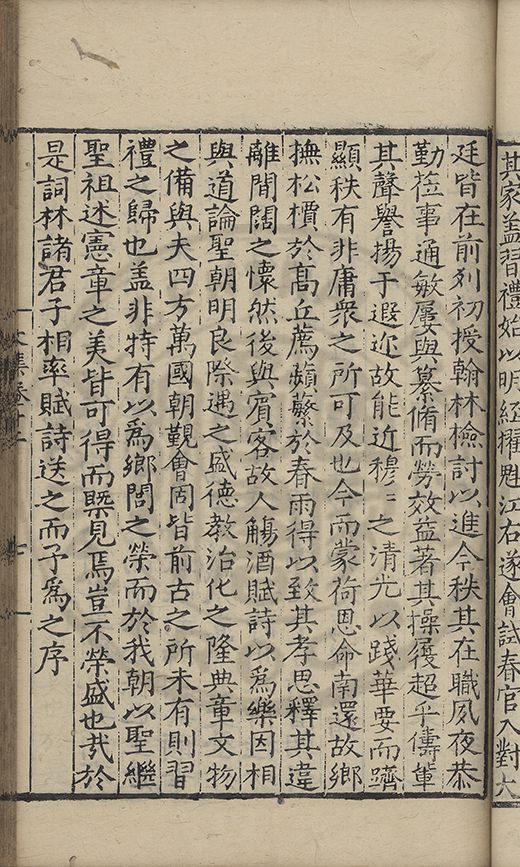 其家盖習禮始以明經擢魁江右遂會試春官入對大
廷皆在前列初授翰林檢討以進今秩其在職夙夜恭
勤蒞事通敏屢與纂脩而勞效益著其操履超乎儔輩
其聲譽揚于遐迩故能近穆〻之清光以踐華要而躋
顯秩有非庸衆之所可及也今而蒙荷恩命南還故鄉
撫松檟於高丘薦蘋蘩於春雨得以致其孝思釋其違
離間闊之懷然後與賓客故人觴酒賦詩以爲樂因相
與道論聖朝明良際遇之盛德教治化之隆典章文物
之備與夫四方萬國朝覲會同皆前古之所未有則習
禮之歸也盖非特有以爲鄉閭之榮而於我朝以聖繼
聖祖述憲章之美皆可得而槩見焉豈不榮盛也㢤於
是詞林諸君子相率賦詩送之而予爲之序